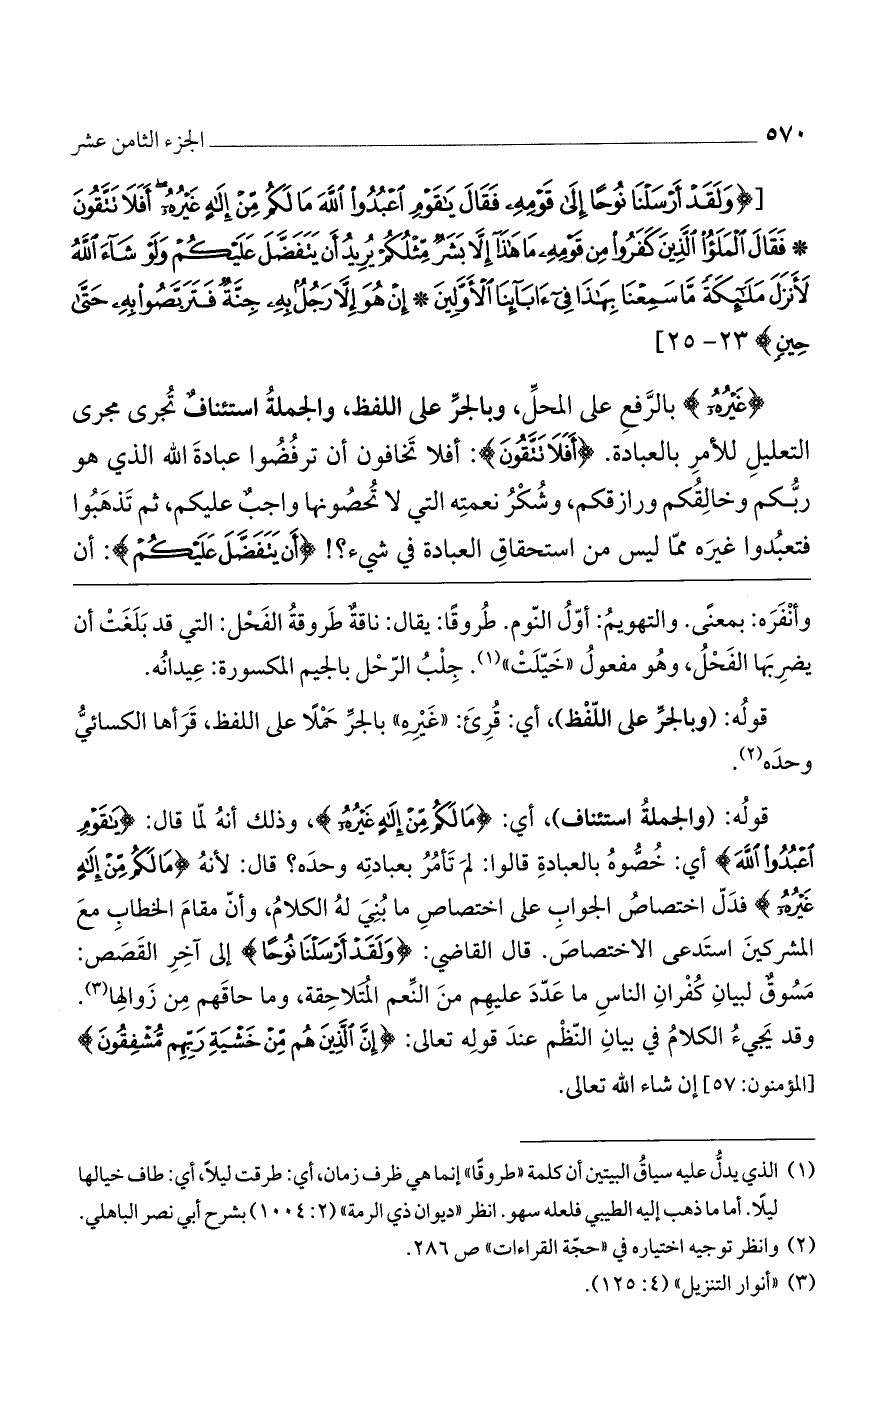 ٥٧٠ الجزء الثامن عشر
[﴿وَلَقَدْ أَرْسَلْنَا نُوحًا إِلَىٰ قَوْمِهِۦ فَقَالَ يَٰقَوْمِ ٱعْبُدُوا۟ ٱللَّهَ مَا لَكُم مِّنْ إِلَٰهٍ غَيْرُهُۥٓ ۖ أَفَلَا تَتَّقُونَ
* فَقَالَ ٱلْمَلَؤُا۟ ٱلَّذِينَ كَفَرُوا۟ مِن قَوْمِهِۦ مَا هَٰذَآ إِلَّا بَشَرٌ مِّثْلُكُمْ يُرِيدُ أَن يَتَفَضَّلَ عَلَيْكُمْ وَلَوْ شَآءَ ٱللَّهُ
لَأَنزَلَ مَلَٰٓئِكَةً مَّا سَمِعْنَا بِهَٰذَا فِىٓ ءَابَآئِنَا ٱلْأَوَّلِينَ * إِنْ هُوَ إِلَّا رَجُلٌۢ بِهِۦ جِنَّةٌ فَتَرَبَّصُوا۟ بِهِۦ حَتَّىٰ
حِينٍ﴾ ٢٣- ٢٥]
﴿غَيْرُهُۥ﴾ بالرَّفعِ على المحلِّ، وبالجرِّ على اللفظ، والجملةُ استئنافٌ تُجرى مجرى
التعليلِ للأمرِ بالعبادة. ﴿أَفَلَا تَتَّقُونَ﴾: أفلا تَخافون أن ترفُضُوا عبادةَ الله الذي هو
ربُّكم وخالِقُكم ورازقكم، وشُكْرُ نعمتِه التي لا تُحصُونها واجبٌ عليكم، ثم تَذهَبُوا
فتعبُدوا غيرَه ممّا ليس من استحقاقِ العبادة في شيء؟! ﴿أَن يَتَفَضَّلَ عَلَيْكُمْ﴾: أن
وأنْفَرَه: بمعنًى. والتهويمُ: أوّلُ النّوم. طُروقًا: يقال: ناقةٌ طَروقةُ الفَحْل: التي قد بَلَغَتْ أن
يضرِبَها الفَحْلُ، وهُو مفعولُ «خَيّلَتْ»(١). جِلْبُ الرّحْل بالجيم المكسورة: عِيدانُه.
قولُه: (وبالجرِّ على اللّفْظ)، أي: قُرِئَ: «غَيْرِه» بالجرِّ حَمْلًا على اللفظ، قَرَأها الكسائيُّ
وحدَه(٢).
قولُه: (والجملةُ استئناف)، أي: ﴿مَا لَكُم مِّنْ إِلَٰهٍ غَيْرُهُۥ﴾، وذلك أنهُ لمّا قال: ﴿يَٰقَوْمِ
ٱعْبُدُوا۟ ٱللَّهَ﴾ أي: خُصُّوهُ بالعبادةِ قالوا: لمَ تَأمُرُ بعبادتِه وحدَه؟ قال: لأنهُ ﴿مَا لَكُم مِّنْ إِلَٰهٍ
غَيْرُهُۥ﴾ فدَلّ اختصاصُ الجوابِ على اختصاصِ ما بُنِيَ لهُ الكلامُ، وأنّ مقامَ الخطابِ معَ
المشركينَ استَدعى الاختصاصَ. قال القاضي: ﴿وَلَقَدْ أَرْسَلْنَا نُوحًا﴾ إلى آخِرِ القَصَص:
مَسُوقٌ لبيانِ كُفْرانِ الناسِ ما عَدّدَ عليهِم منَ النِّعم المُتَلاحِقة، وما حاقَهم مِن زَوالِها(٣).
وقد يَجيءُ الكلامُ في بيانِ النّظْم عندَ قولِه تعالى: ﴿إِنَّ ٱلَّذِينَ هُم مِّنْ خَشْيَةِ رَبِّهِم مُّشْفِقُونَ﴾
[المؤمنون: ٥٧] إن شاء الله تعالى.
(١) الذي يدلُّ عليه سياقُ البيتين أن كلمة «طروقًا» إنما هي ظرف زمان، أي: طرقت ليلاً، أي: طاف خيالها
ليلًا. أما ما ذهب إليه الطيبي فلعله سهو. انظر «ديوان ذي الرمة» (٢: ١٠٠٤) بشرح أبي نصر الباهلي.
(٢) وانظر توجيه اختياره في «حجّة القراءات» ص ٢٨٦.
(٣) «أنوار التنزيل» (٤: ١٢٥).